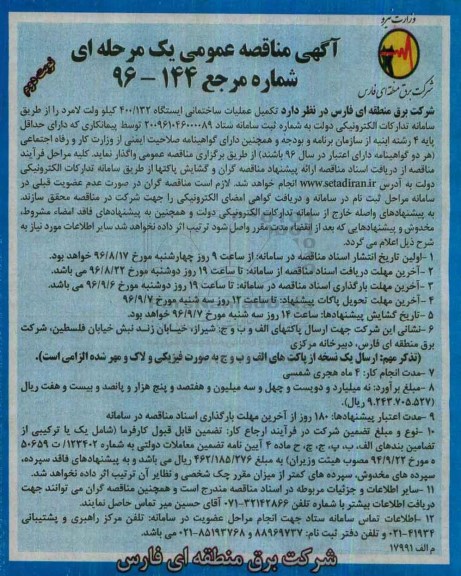 وزارت نیرو
شرکت برق منطقه ای فارس
نوبت دوم
آگهی مناقصه عمومی یک مرحله ای
شماره مرجع ۱۴۴ - ۹۶
شرکت برق منطقه ای فارس در نظر دارد تکمیل عملیات ساختمانی ایستگاه ۴۰۰/۱۳۲ کیلو ولت لامرد را از طریق
سامانه تدارکات الکترونیکی دولت به شماره ثبت سامانه ستاد ۲۰۰۹۶۱۰۴۶۰۰۰۰۸۹ توسط پیمانکاری که دارای حداقل
پایه ۴ رشته ابنیه از سازمان برنامه و بودجه و همچنین دارای گواهینامه صلاحیت ایمنی از وزارت کار و رفاه اجتماعی
(هر دو گواهینامه دارای اعتبار در سال ۹۶ باشند) از طریق برگزاری مناقصه عمومی واگذار نماید. کلیه مراحل فرآیند
مناقصه از دریافت اسناد مناقصه ارائه پیشنهاد مناقصه گران و گشایش پاکتها از طریق سامانه تدارکات الکترونیکی
دولت به آدرس www.setadiran.ir انجام خواهد شد. لازم است مناقصه گران در صورت عدم عضویت قبلی در
سامانه مراحل ثبت نام در سامانه و دریافت گواهی امضای الکترونیکی را جهت شرکت در مناقصه محقق سازند.
به پیشنهادهای واصله خارج از سامانه تدارکات الکترونیکی دولت و همچنین به پیشنهادهای فاقد امضاء، مشروط،
مخدوش و پیشنهادهایی که بعد از انقضاء مدت مقرر واصل شود ترتیب اثر داده نخواهد شد.سایر اطلاعات مورد نیاز به
شرح ذیل اعلام می گردد.
۱ -اولین تاریخ انتشار اسناد مناقصه در سامانه: از ساعت ۹ روز چهارشنبه مورخ ۹۶/۸/۱۷ خواهد بود.
۲ -آخرین مهلت دریافت اسناد مناقصه از سامانه: تا ساعت ۱۹ روز دوشنبه مورخ ۹۶/۸/۲۲ می باشد.
۳ -آخرین مهلت بارگذاری اسناد مناقصه در سامانه: تا ساعت ۱۹ روز دوشنبه مورخ ۹۶/۹/۶ می باشد.
۴ -آخرین مهلت تحویل پاکات پیشنهاد: تا ساعت ۱۲ روز سه شنبه مورخ ۹۶/۹/۷
۵ -تاریخ گشایش پیشنهادها: ساعت ۱۴ روز سه شنبه مورخ ۹۶/۹/۷ خواهد بود.
۶ -نشانی این شرکت جهت ارسال پاکتهای الف و ب و ج: شیراز، خیابان زند نبش خیابان فلسطین، شرکت
برق منطقه ای فارس، دبیرخانه مرکزی
(تذکر مهم: ارسال یک نسخه از پاکت های الف و ب و ج به صورت فیزیکی و لاک و مهر شده الزامی است).
۷ -مدت انجام کار: ۴ ماه هجری شمسی
۸ -مبلغ برآورد: نه میلیارد و دویست و چهل و سه میلیون و هفتصد و پنج هزار و پانصد و بیست و هفت ریال
(۹.۲۴۳.۷۰۵.۵۲۷ ریال).
۹ -مدت اعتبار پیشنهادها: ۱۸۰ روز از آخرین مهلت بارگذاری اسناد مناقصه در سامانه
۱۰ -نوع و مبلغ تضمین شرکت در فرآیند ارجاع کار: تضمین قابل قبول کارفرما (شامل یک یا ترکیبی از
تضامین بندهای الف، ب، پ، ج، چ، ح ماده ۴ آیین نامه تضمین معاملات دولتی به شماره ۱۲۳۴۰۲/ت ۵۰۶۵۹
ه مورخ ۹۴/۹/۲۲ مصوب هیئت وزیران) به مبلغ ۴۶۲/۱۸۵/۲۷۶ ریال می باشد و به پیشنهادهای فاقد سپرده،
سپرده های مخدوش، سپرده های کمتر از میزان مقرر چک شخصی و نظایر آن ترتیب اثر داده نخواهد شد.
۱۱ -سایر اطلاعات و جزئیات مربوطه در اسناد مناقصه مندرج است و همچنین مناقصه گران می توانند جهت
دریافت اطلاعات بیشتر با شماره تلفن ۳۲۱۴۲۸۶۶-۰۷۱ آقای حسین میر تماس حاصل نمایند.
۱۲ -اطلاعات تماس سامانه ستاد جهت انجام مراحل عضویت در سامانه: تلفن مرکز راهبری و پشتیبانی
۴۱۹۳۴-۰۲۱ و تلفن دفتر ثبت نام: ۸۸۹۶۹۷۳۷ و ۸۵۱۹۳۷۶۸-۰۲۱ می باشد.
م الف ۱۷۹۹۱
شرکت برق منطقه ای فارس